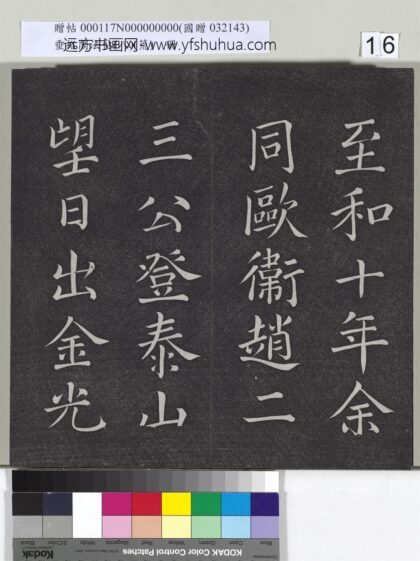 贈帖 000117N000000000(國贈 032143)
远方书画网 www.yfshuhua.com
16
至和十年余
同歐衞趙二
三公登泰山
望日出金光
KODAK Color Control Patches
Blue Cyan Green Yellow Red Magenta White 3/Color Black
Kodak